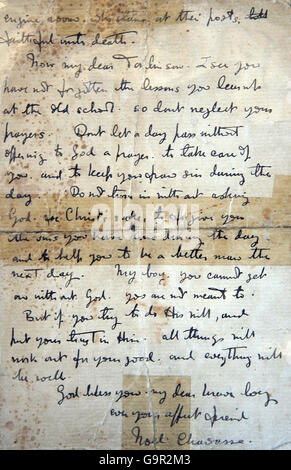 engine room. who stung at their posts,
faithful unto death.
Now my dear Parkinson. I see you
have not forgotten the lessons you learnt
at the old school. so don't neglect your
prayers. Don't let a day pass without
offering to God a prayer. to take care of
you. and to keep you from sin during the
day. Do not turn in without asking
God. for Christ. sake. to forgive you
the sins you have done during the day.
and to help you to be a better man the
next day. My boy. you cannot get
on without God. you are not meant to.
But if you try to do His will, and
put your trust in Him. all things will
work out for your good. and everything will
be well.
God bless you. my dear brave boy
ever your affect friend
Noel Chavasse.
alamy
alamy
Image ID: G9R2M3
www.alamy.com